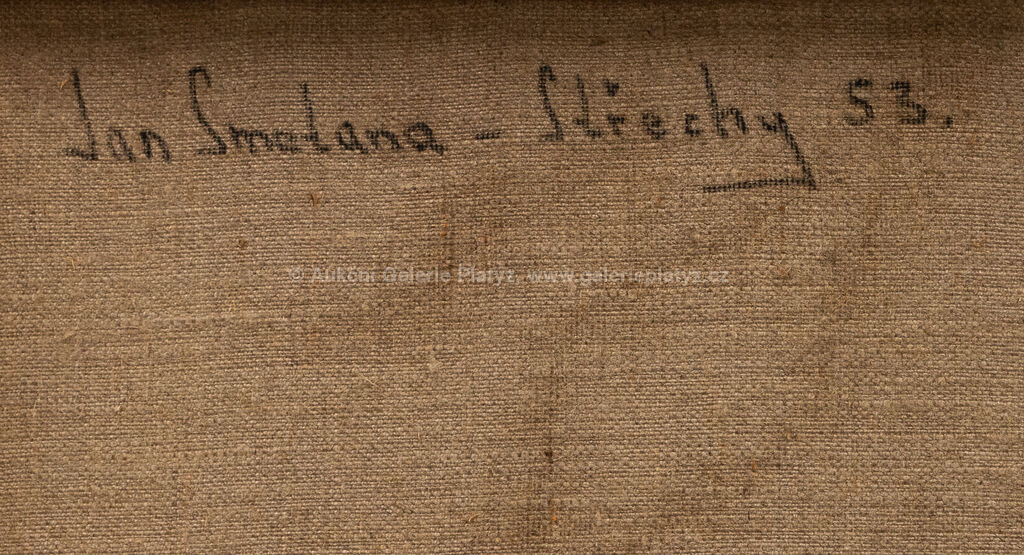 Jan Smetana – Střechy 53.
© Aukční Galerie Platýz, www.galerieplatyz.cz